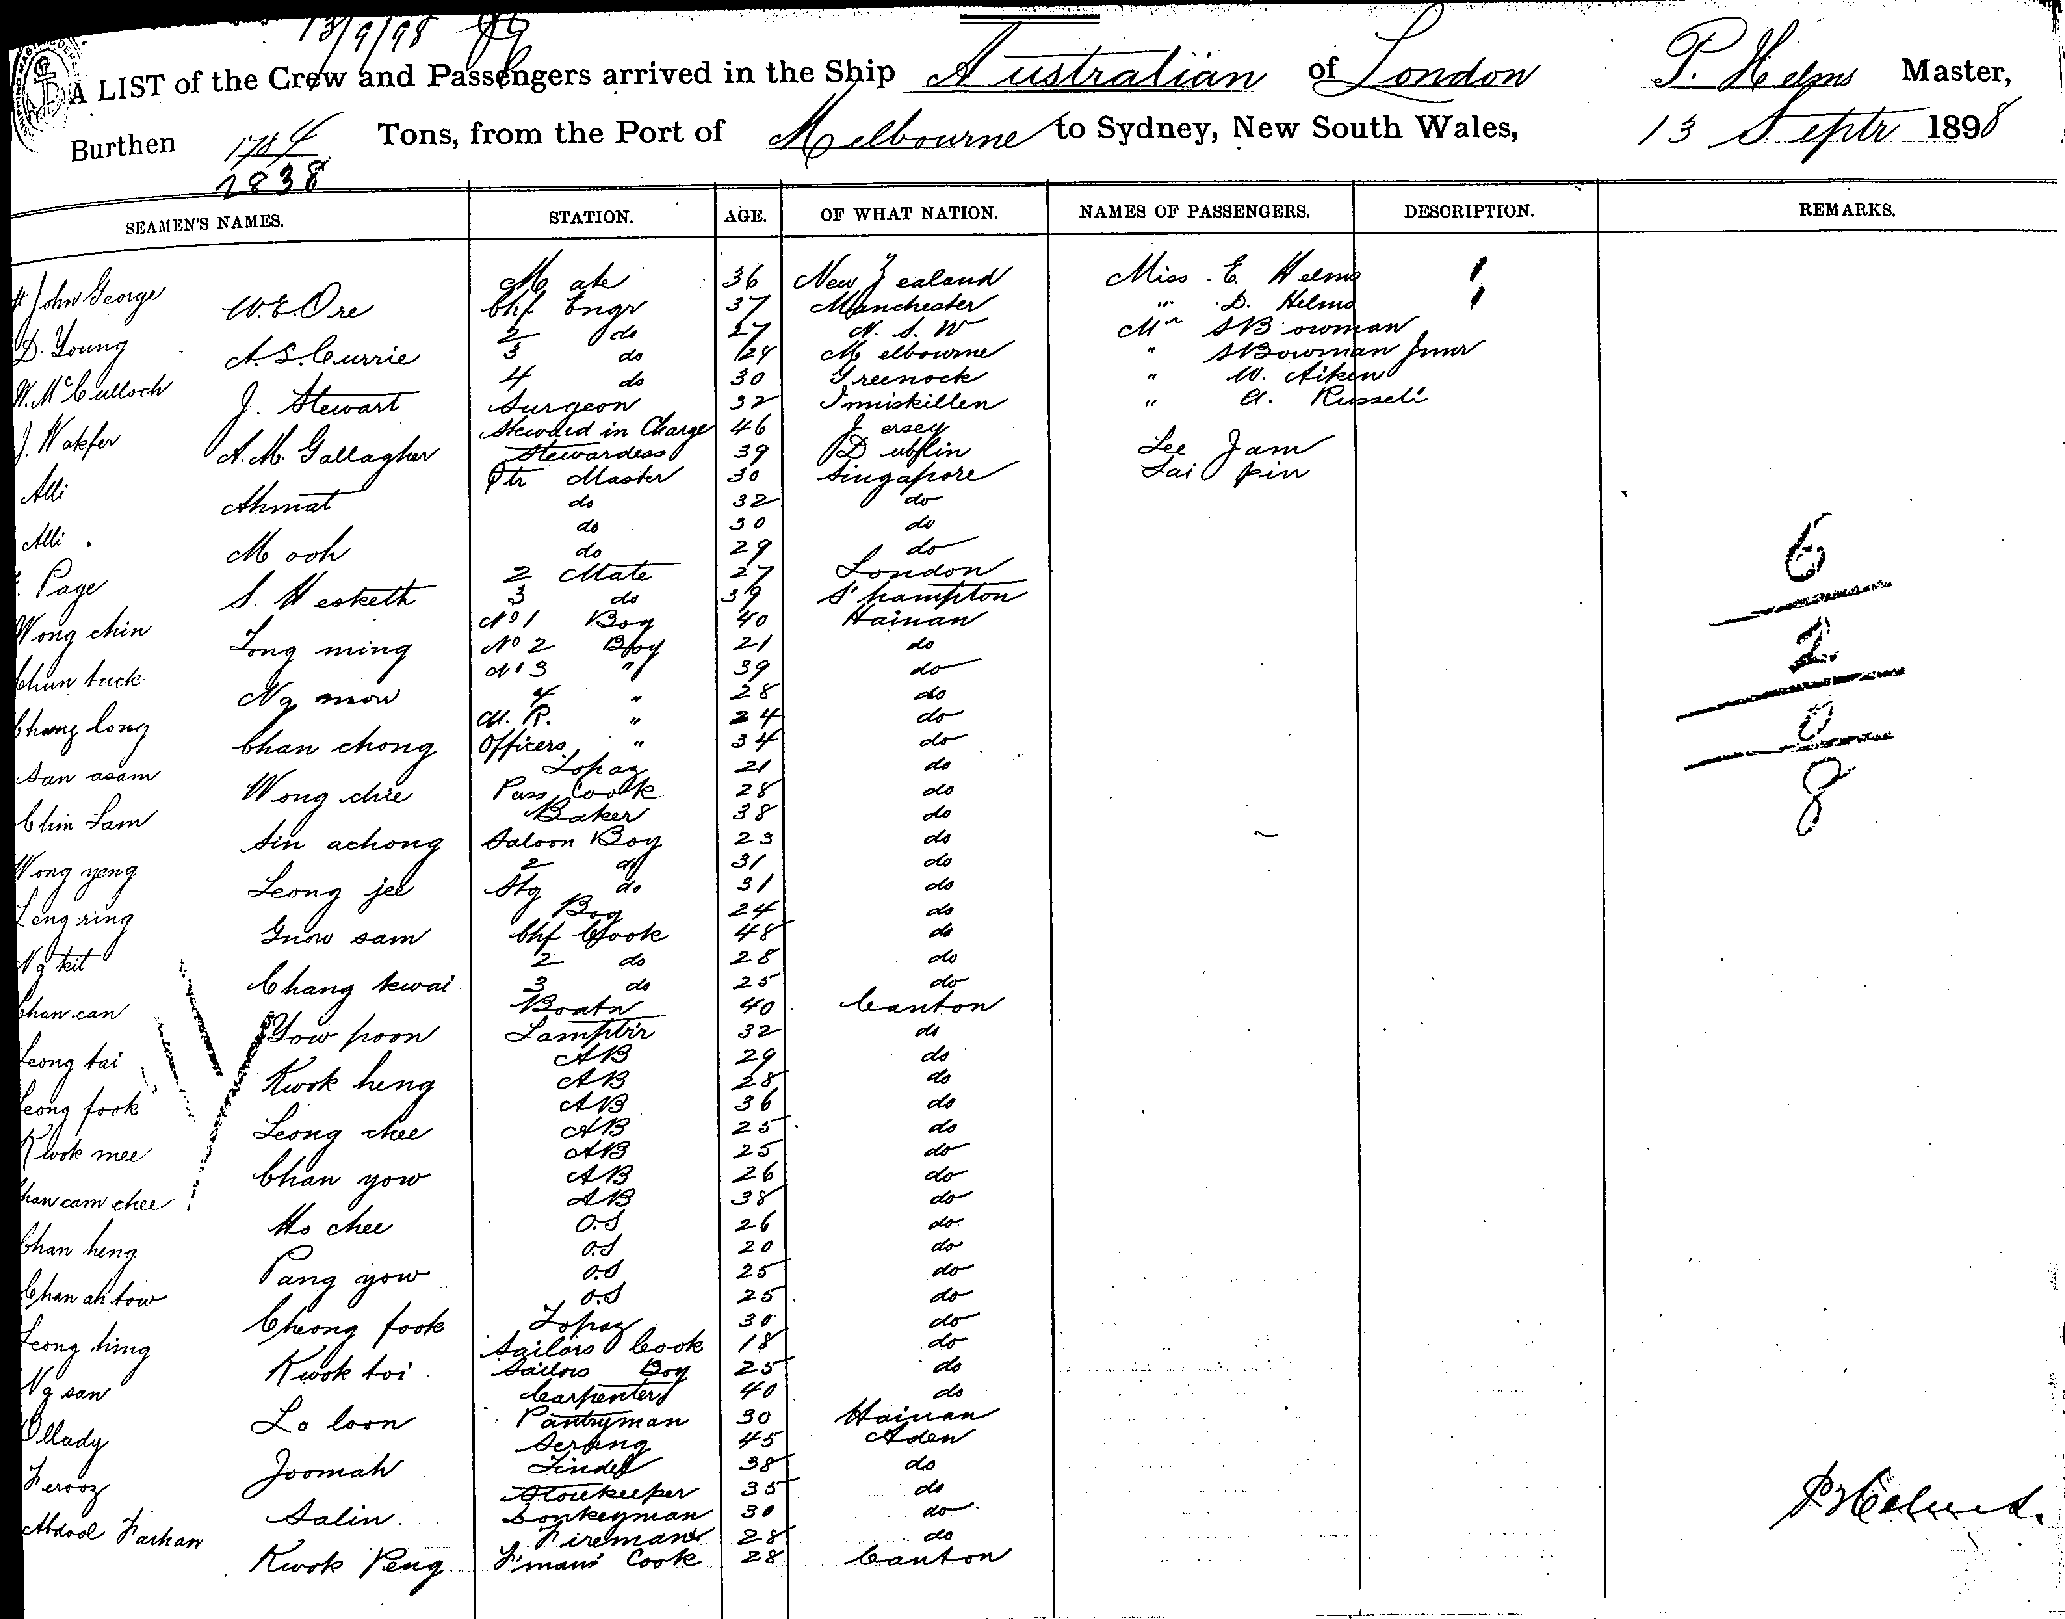 13/9/98
A LIST of the Crew and Passengers arrived in the Ship Australian of London P. Helms Master,
Burthen 1784 Tons, from the Port of Melbourne to Sydney, New South Wales, 13 Septr 1898
2838
SEAMEN'S NAMES. STATION. AGE. OF WHAT NATION. NAMES OF PASSENGERS. DESCRIPTION. REMARKS.
John George Mate 36 New Zealand Miss E. Helms
W. E. Ore Chf Engr 37 Manchester " D. Helms
D. Young 2 do 27 N. S. W Mr S Bowman
A. S. Currie 3 do 24 Melbourne " S Bowman Junr
W. McCulloch 4 do 30 Greenock " W. Aiken
J. Stewart Surgeon 32 Inniskillen " A. Russell
J. Wakfer Steward in Charge 46 Jersey
A. M. Gallagher Stewardess 39 Dublin Lee Jam
Alli Qtr Master 30 Singapore Lai pin
Ahmat do 32 do
Alli do 30 do
Mooh do 29 do
Page 2 Mate 27 London
S. Hesketh 3 do 39 S'hampton
Wong chin No 1 Boy 40 Hainan
Tong ming No 2 Boy 21 do
Chun tuck No 3 " 39 do
Ng mow 4 " 28 do
Chang long M. R. " 24 do
Chan chong Officers " 34 do
San asam Topaz 21 do
Wong chie Pass Cook 28 do
Chin Sam Baker 38 do
Sin achong Saloon Boy 23 do
Wong yeng 2 do 31 do
Leong jee Stg do 31 do
Leng ring Boy 24 do
Gnow sam Chf Cook 48 do
Ng kit 2 do 28 do
Chang kwai 3 do 25 do
Chan can Boatn 40 Canton
Yow poon Lamptrr 32 do
Leong tai AB 29 do
Kwok heng AB 28 do
Leong fook AB 36 do
Leong chee AB 25 do
Kwok mee AB 25 do
Chan yow AB 26 do
Chan cam chee AB 38 do
Ho chee O.S 26 do
Chan heng O.S 20 do
Pang yow O.S 25 do
Chan ah tow O.S 25 do
Cheong fook Topaz 30 do
Leong hing Sailors Cook 18 do
Kwok toi Sailors Boy 25 do
Ng san Carpenter 40 do
Lo loon Pantryman 30 Hainan
Ollady Serang 45 Aden
Joomah Tindel 38 do
Ferooz Storekeeper 35 do
Salin Donkeyman 30 do
Abdool Farhan Fireman 28 do
Kwok Peng F'mans Cook 28 Canton
6
2
0
8
P Helms.